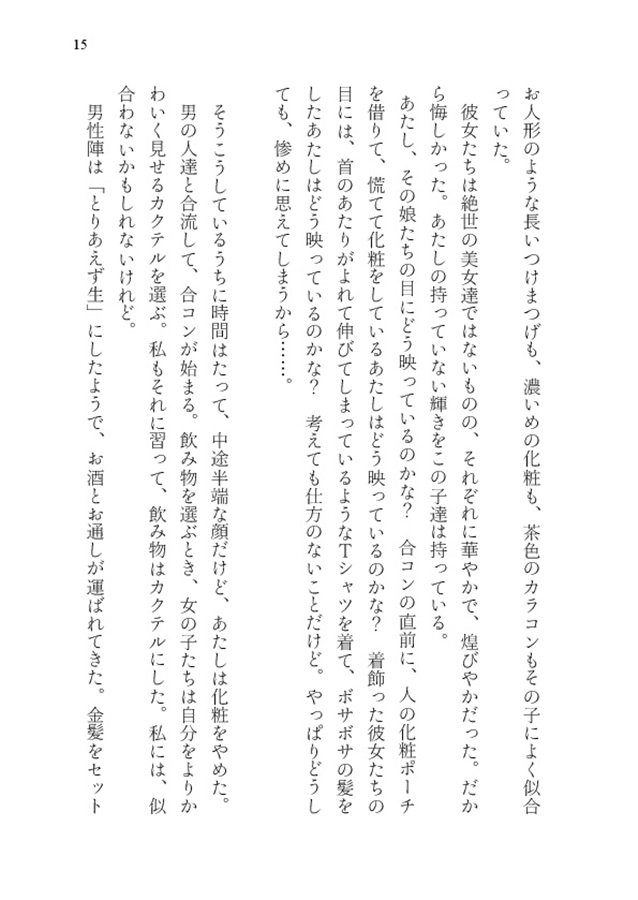 15
お人形のような長いつけまつげも、濃いめの化粧も、茶色のカラコンもその子によく似合
っていた。
　彼女たちは絶世の美女達ではないものの、それぞれに華やかで、煌びやかだった。だか
ら悔しかった。あたしの持っていない輝きをこの子達は持っている。
　あたし、その娘たちの目にどう映っているのかな？　合コンの直前に、人の化粧ポーチ
を借りて、慌てて化粧をしているあたしはどう映っているのかな？　着飾った彼女たちの
目には、首のあたりがよれて伸びてしまっているようなＴシャツを着て、ボサボサの髪を
したあたしはどう映っているのかな？　考えても仕方のないことだけど。やっぱりどうし
ても、惨めに思えてしまうから……。
　そうこうしているうちに時間はたって、中途半端な顔だけど、あたしは化粧をやめた。
　男の人達と合流して、合コンが始まる。飲み物を選ぶとき、女の子たちは自分をよりか
わいく見せるカクテルを選ぶ。私もそれに習って、飲み物はカクテルにした。私には、似
合わないかもしれないけれど。
　男性陣は「とりあえず生」にしたようで、お酒とお通しが運ばれてきた。金髪をセット